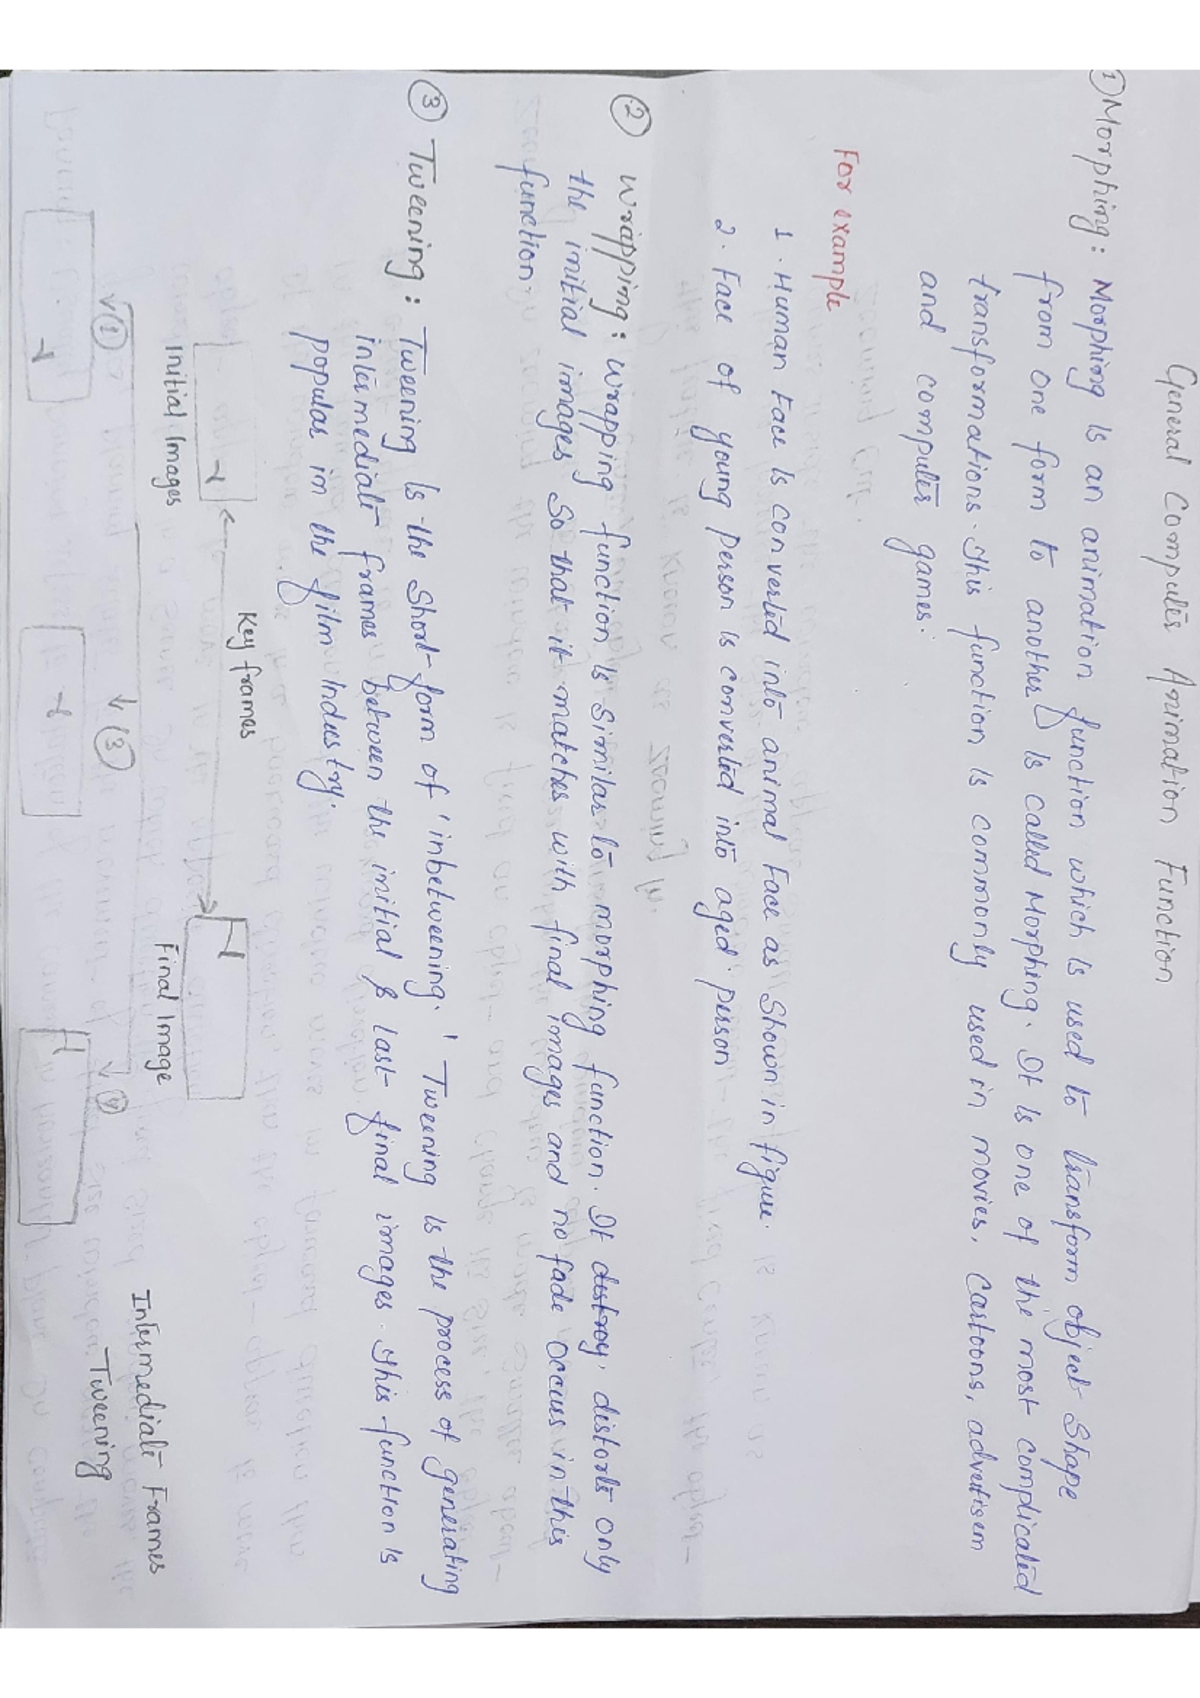 General Computer Animation Function
① Morphing : Morphing is an animation function which is used to transform object shape
from one form to another is called Morphing. It is one of the most complicated
transformations. This function is commonly used in movies, cartoons, advertisem
and computer games.
For example
1. Human Face is converted into animal Face as shown in figure.
2. Face of young person is converted into aged person
② Wrapping : Wrapping function is similar to morphing function. It destroy, distorts only
the initial images so that it matches with final images and no fade occurs in this
function.
③ Tweening : Tweening is the short form of 'inbetweening.' Tweening is the process of generating
intermediate frames between the initial & last final images. This function is
popular in the film industry.
Key frames
Initial Images
Final Image
①
③
Intermediate Frames
Tweening